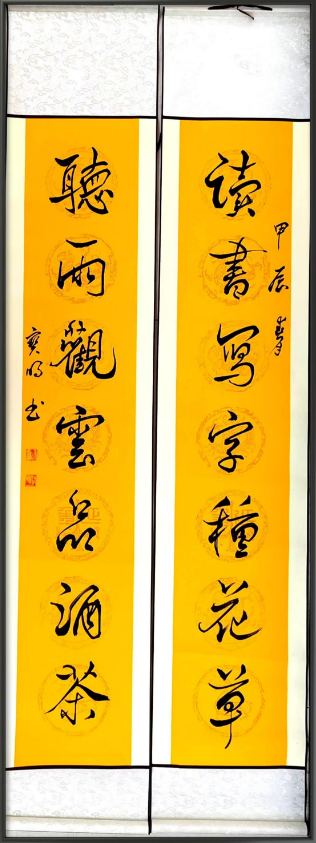 甲辰春
读書寫字種花草
聽雨觀雲品酒茶
寶明书